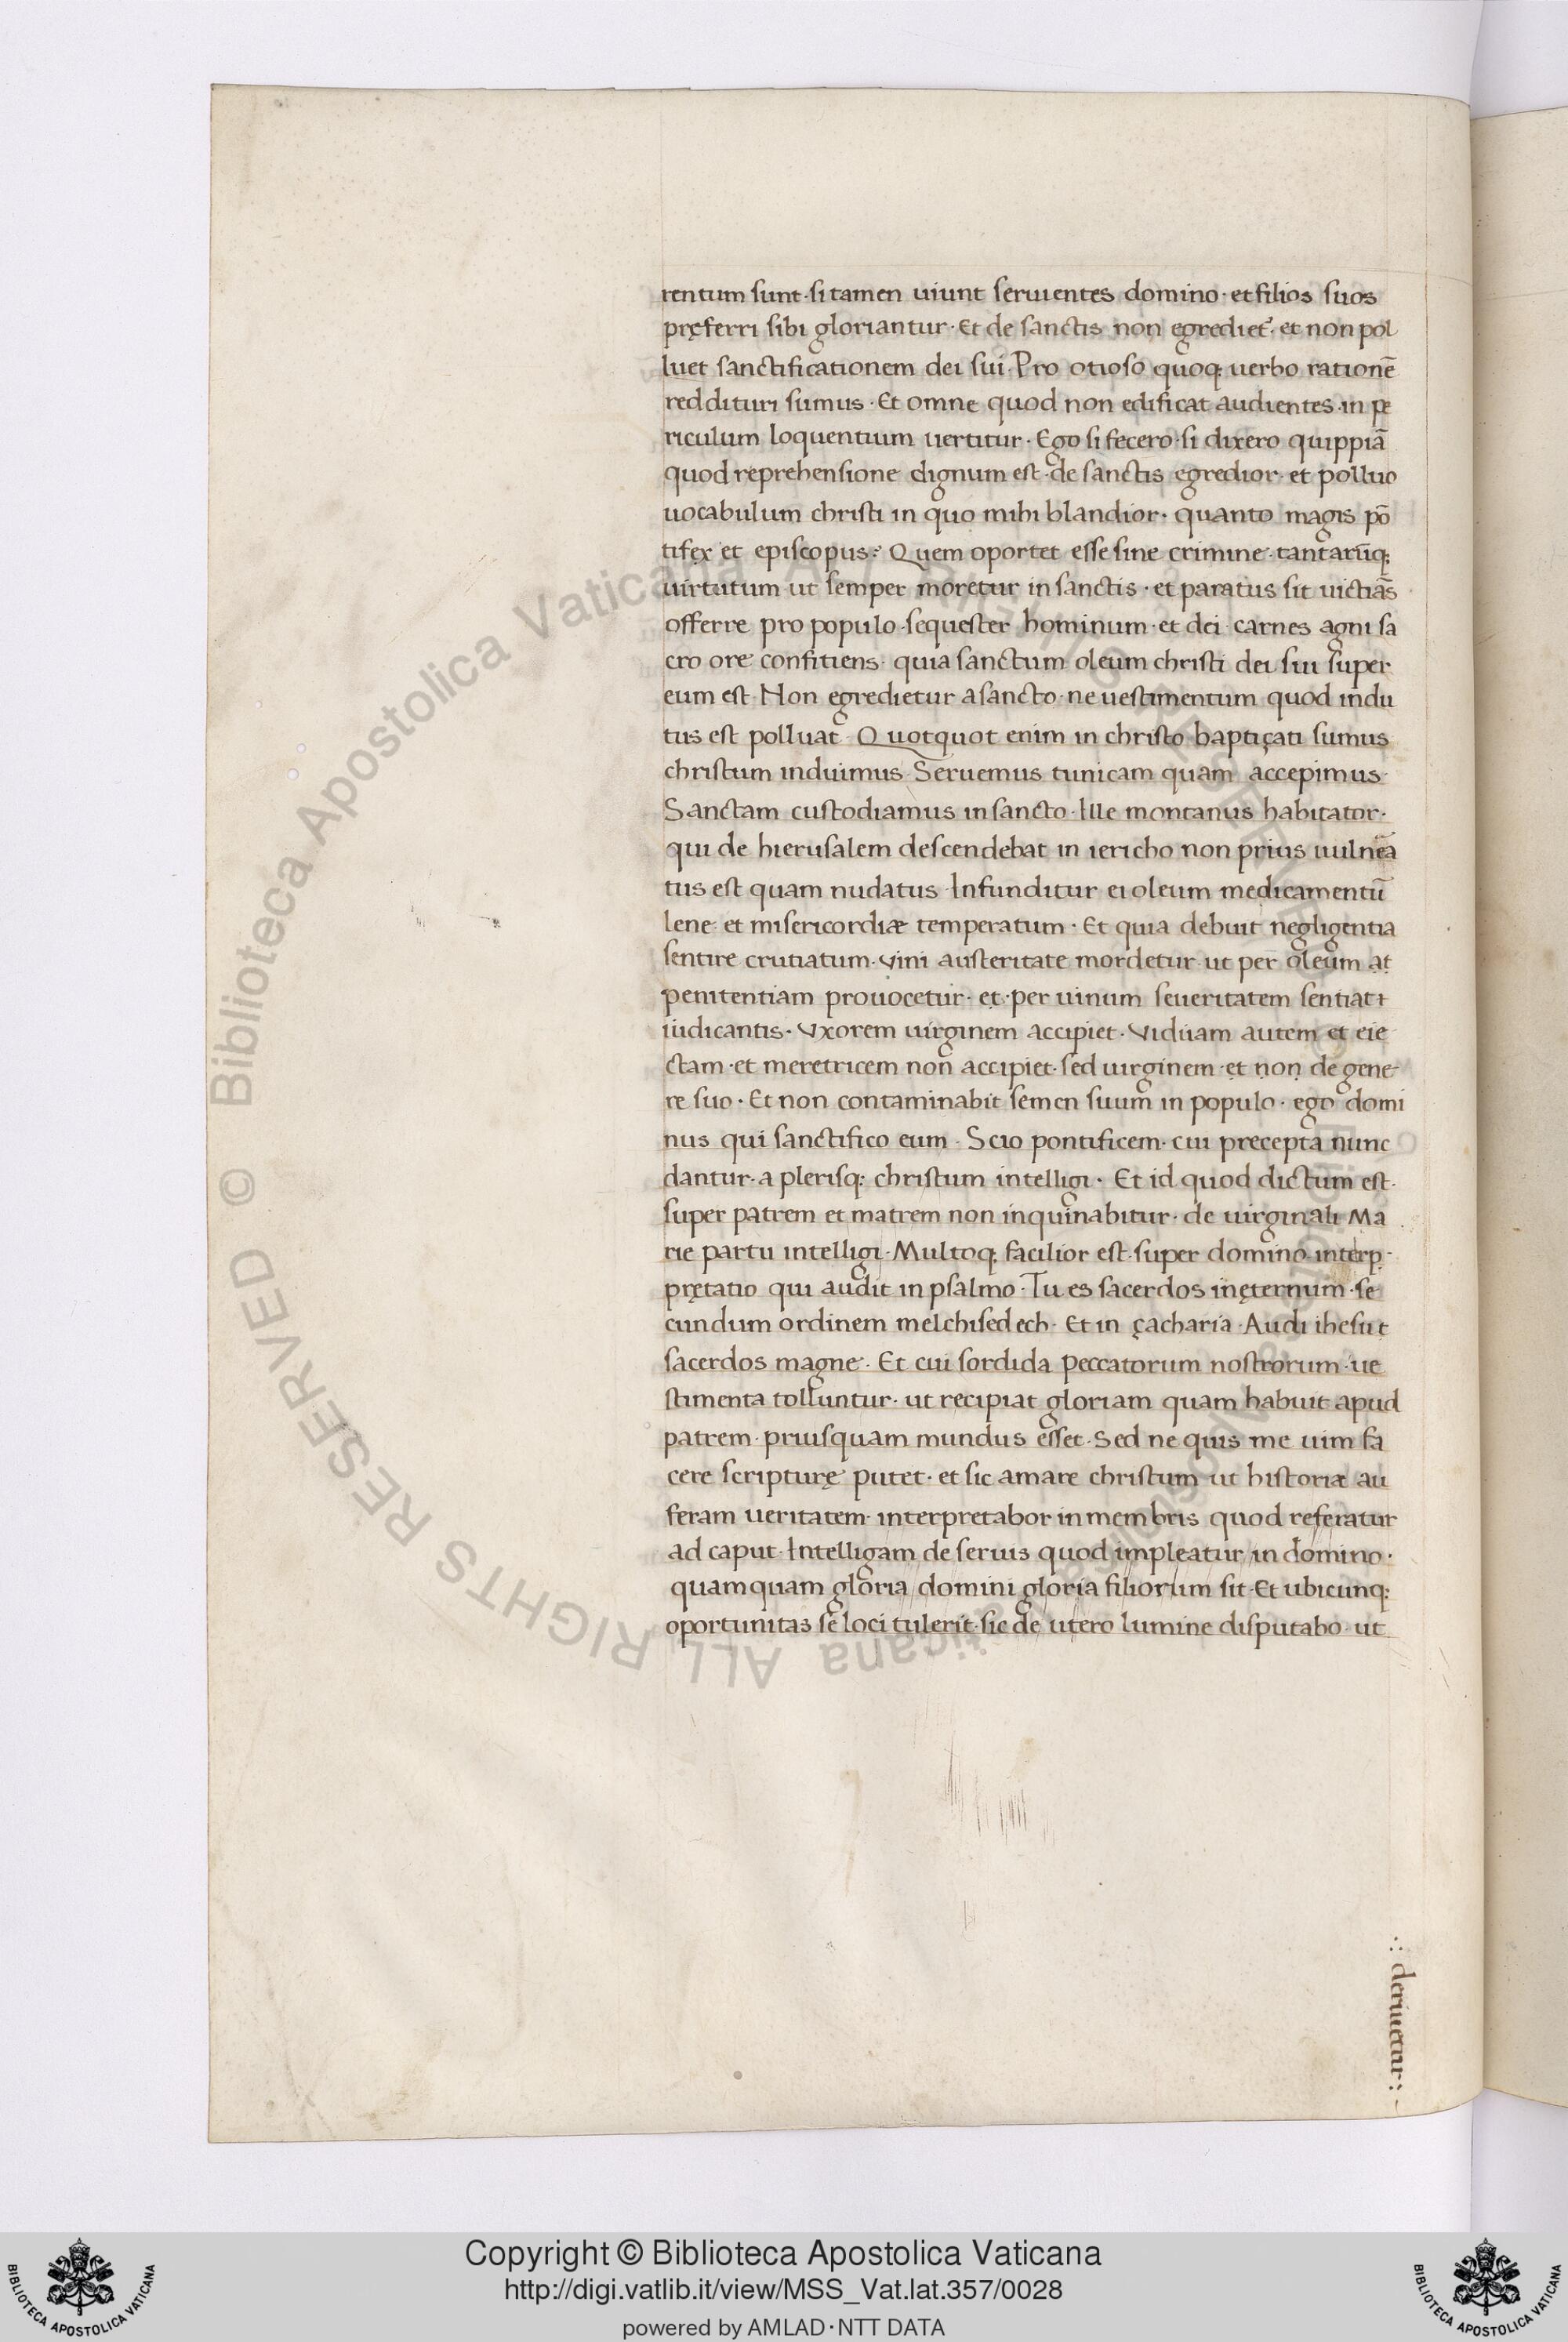 rentum sunt · si tamen uiunt seruientes domino · et filios suos
pręferri sibi gloriantur · Et de sanctis non egrediet᷒ · et non pol
luet sanctificationem dei sui · Pro otioso quoq; uerbo rationē
reddituri sumus · Et omne quod non edificat audientes · in pe
riculum loquentium uertitur · Ego si fecero · si dixero quippiā
quod reprehensione dignum est · de sanctis egredior · et polluo
uocabulum christi in quo mihi blandior · quanto magis pō
tifex et episcopus? Quem oportet esse sine crimine · tantarūq;
uirtutum · ut semper moretur in sanctis · et paratus sit uictiās
offerre pro populo · sequester hominum · et dei · carnes agni sa
cro ore confitiens · quia sanctum oleum christi dei sui super
eum est · Non egredietur a sancto · ne uestimentum quod indu
tus est polluat · Quotquot enim in christo baptiçati sumus
christum induimus · Seruemus tunicam quam accepimus ·
Sanctam custodiamus in sancto · Ille montanus habitator ·
qui de hierusalem descendebat in iericho non prius uulnea
tus est quam nudatus · Infunditur ei oleum medicamentū
lene · et misericordiæ temperatum · Et quia debuit negligentia
sentire crutiatum · vini austeritate mordetur · ut per oleum at
penitentiam prouocetur · et · per uinum seueritatem sentiat
iudicantis · Vxorem uirginem accipiet · Viduam autem et eie
ctam · et meretricem non accipiet · sed uirginem · et non de gene-
re suo · Et non contaminabit semen suum in populo · ego domi
nus qui sanctifico eum · Scio pontificem · cui precepta nunc
dantur · a plerisq; christum intelligi · Et id quod dictum est ·
super patrem et matrem non inquinabitur · de uirginali Ma
rie partu intelligi · Multoq; facilior est · super domino · interp̱ -
prętatio qui audit in psalmo · Tu es sacerdos in ęternum · se
cundum ordinem melchisedech · Et in çacharia · Audi ihesu
sacerdos magne · Et cui sordida peccatorum nostrorum · ue
stimenta tolluntur · ut recipiat gloriam quam habuit apud
patrem · priusquam mundus esset · Sed ne quis me uim fa
cere scripturę putet · et sic amare christum ut historiæ au
feram ueritatem · interpretabor in membris quod referatur
ad caput · Intelligam de seruis quod impleatur in domino ·
quamquam gloria domini gloria filiorum sit · Et ubicunq;
oportunitas se loci tulerit · sic de utero lumine disputabo · ut
.: deriuetur :-
© Biblioteca Apostolica Vaticana ALL RIGHTS RESERVED © Biblioteca Apostolica Vaticana ALL RIGHTS RESERVED
Copyright © Biblioteca Apostolica Vaticana
http://digi.vatlib.it/view/MSS_Vat.lat.357/0028
powered by AMLAD·NTT DATA
BIBLIOTECA APOSTOLICA VATICANA
BIBLIOTECA APOSTOLICA VATICANA